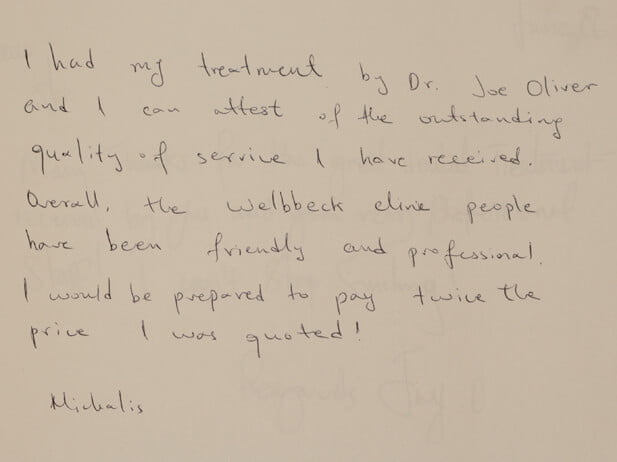 I had my treatment by Dr. Joe Oliver
and I can attest of the outstanding
quality of service I have received.
Overall, the Welbbeck clinic people
have been friendly and professional.
I would be prepared to pay twice the
price I was quoted!
Michalis